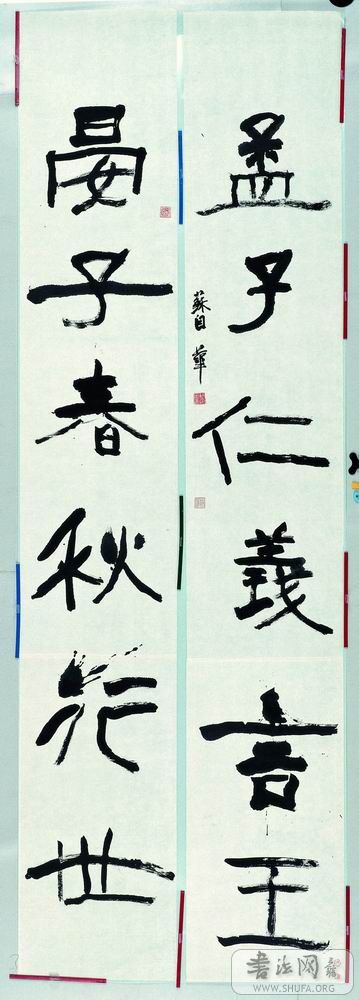 孟子仁義言王
蘇自華
晏子春秋行世
书法网
WWW.SHUFA.ORG